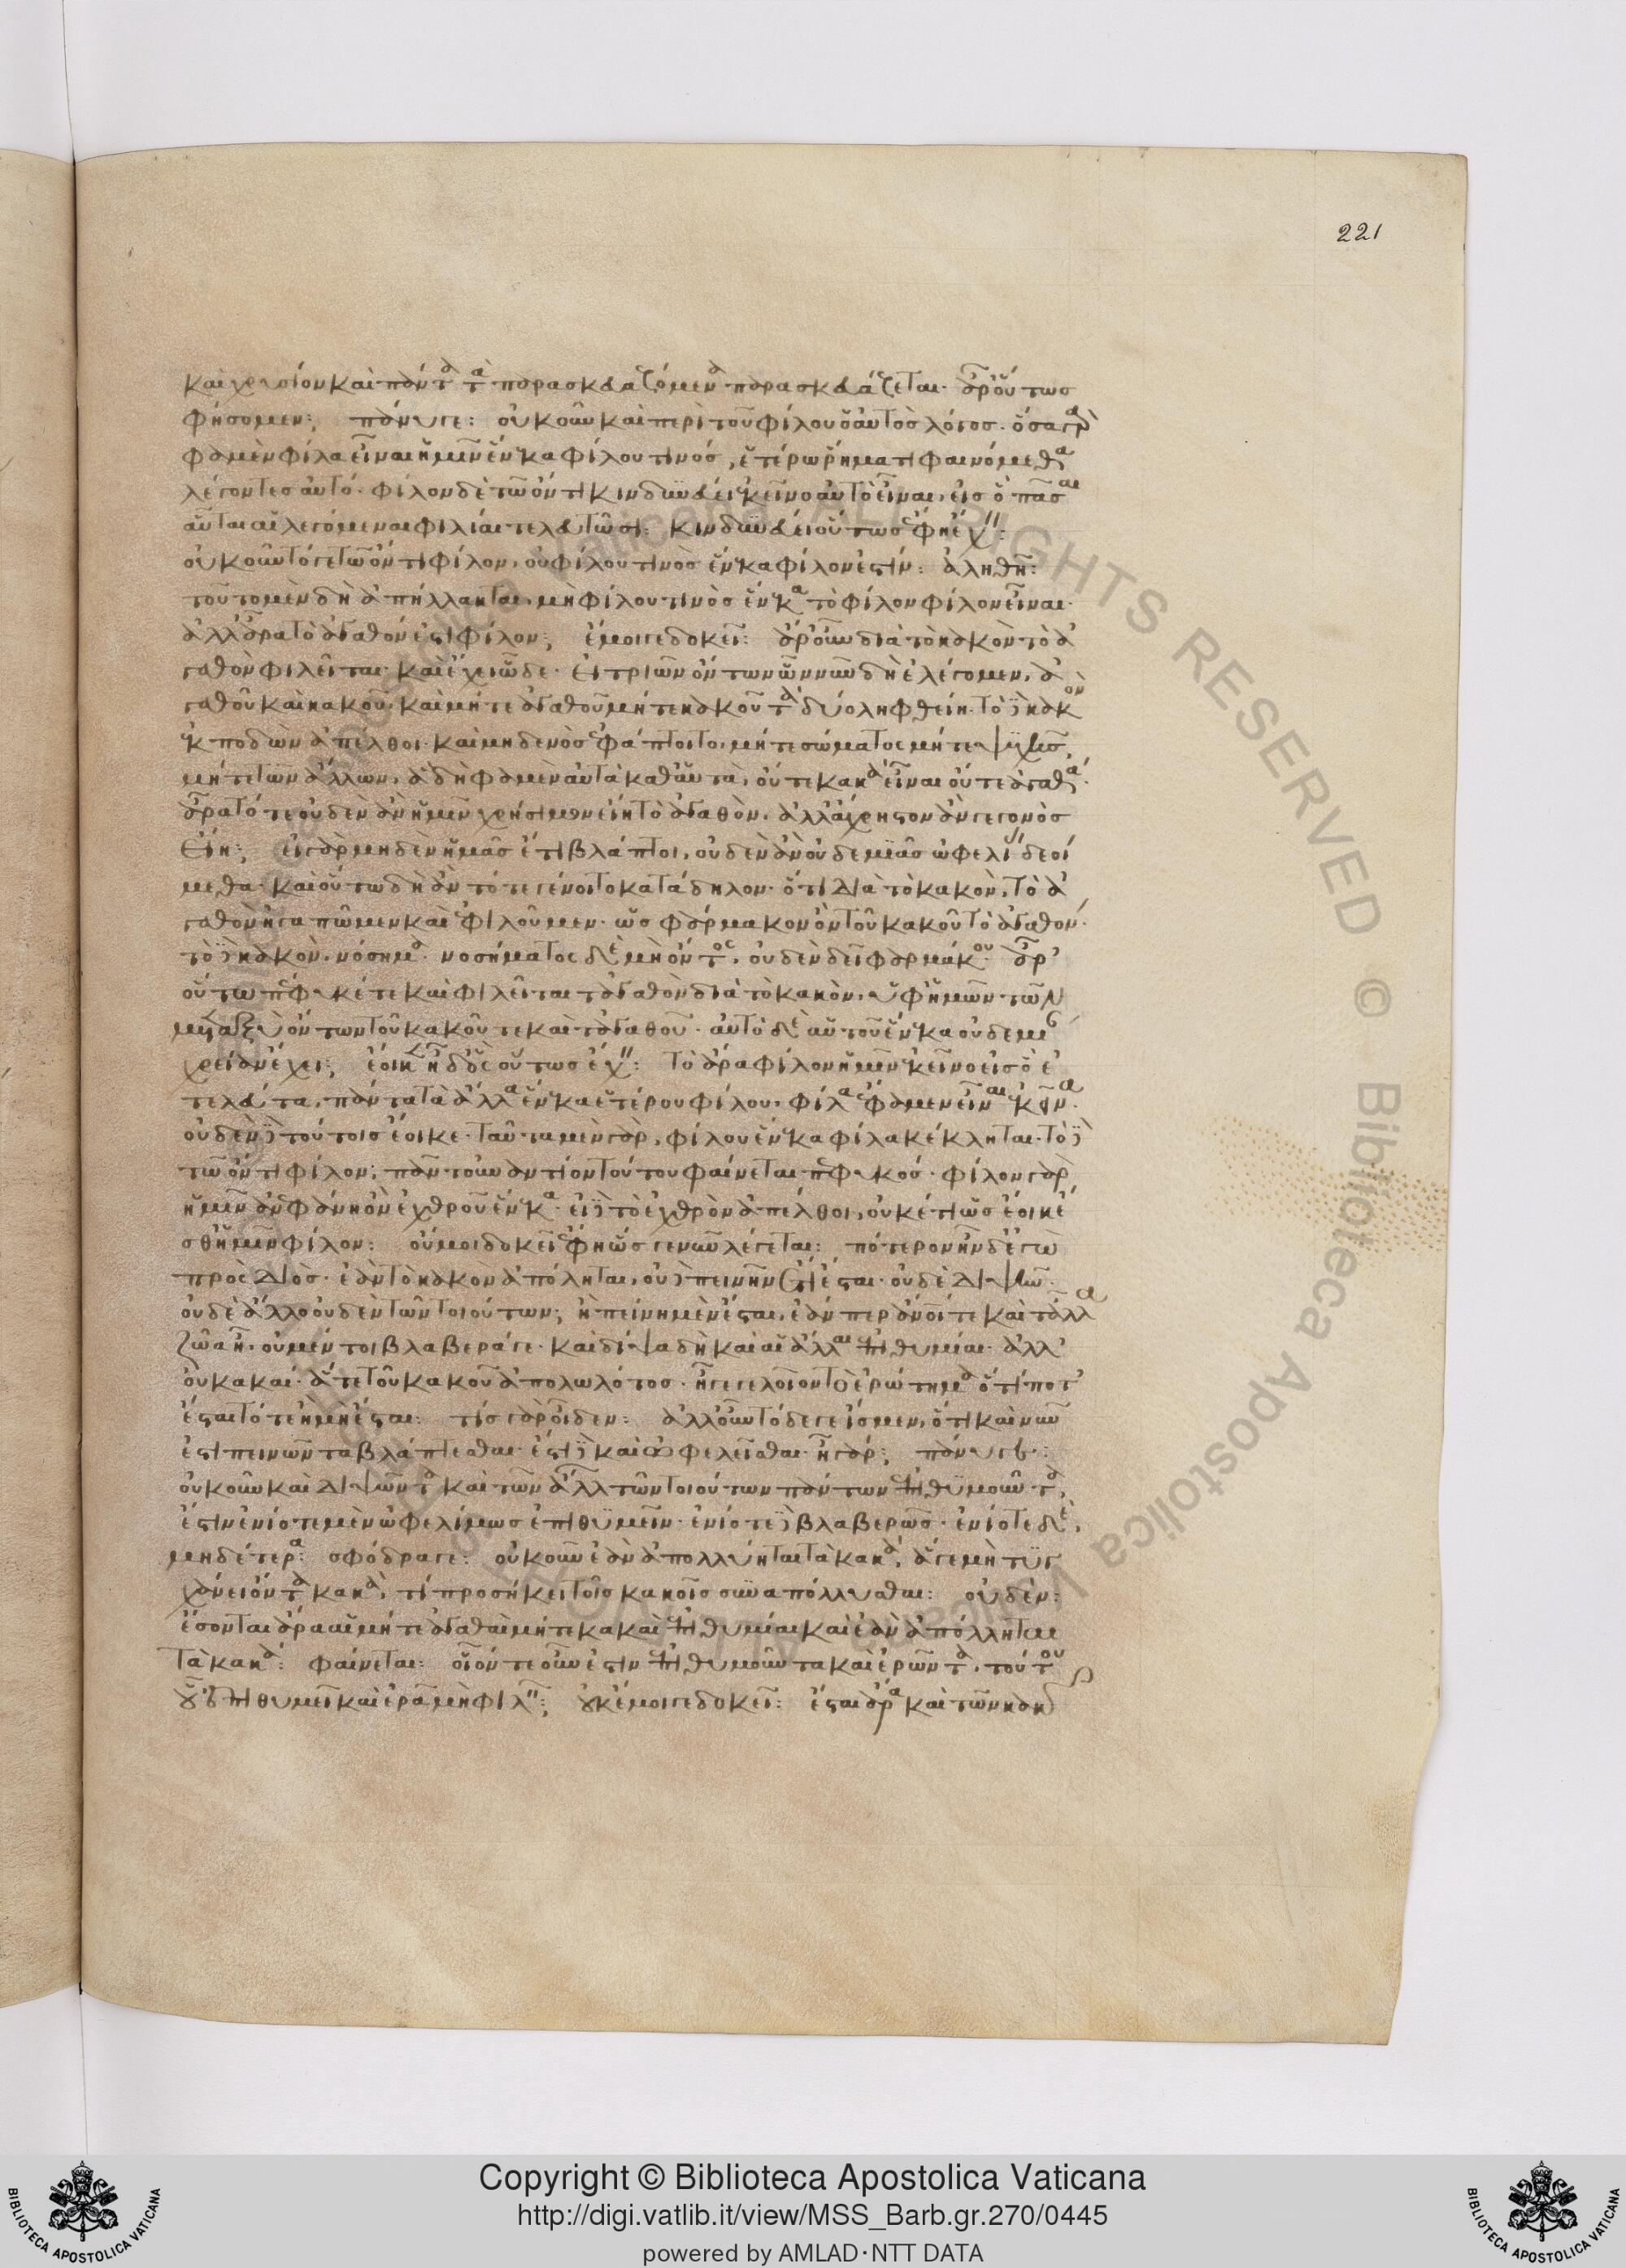 221
καὶ χρυσίον καὶ πάντα τὰ παρασκευαζόμενα παρασκευάζεται· ἆρ' οὕτως
φήσομεν; πάνυ γε: οὐκοῦν καὶ περὶ τοῦ φίλου ὁ αὐτὸς λόγος· ὅσα γάρ
φαμὲν φίλα εἶναι ἡμῖν ἕνεκα φίλου τινός, ἑτέρω ῥήματι φαινόμεθα
λέγοντες αὐτό· φίλον δὲ τῶ ὄντι κινδυνεύει ἐκεῖνο αὐτὸ εἶναι, εἰς ὃ πᾶσαι
αὗται αἱ λεγόμεναι φιλίαι τελευτῶσι: κινδυνεύει οὕτως ἔφη ἔχειν:
οὐκοῦν τό γε τῶ ὄντι φίλον, οὐ φίλου τινὸς ἕνεκα φίλον ἐστίν: ἀληθῆ:
τοῦτο μὲν δὴ ἀπήλλακται, μὴ φίλου τινὸς ἕνεκα τὸ φίλον φίλον εἶναι·
ἀλλ' ἆρα τὸ ἀγαθόν ἐστι φίλον; ἔμοιγε δοκεῖ: ἆρ' οὖν διὰ τὸ κακὸν τὸ ἀ
γαθὸν φιλεῖται· καὶ ἔχει ὧδε· εἰ τριῶν ὄντων ὧν νῦν δὴ ἐλέγομεν, ἀ
γαθοῦ καὶ κακοῦ, καὶ μήτε ἀγαθοῦ μήτε κακοῦ τὰ δύο ληφθείη· τὸ δὲ κακὸν
ἐκποδὼν ἀπέλθοι· καὶ μηδενὸς ἐφάπτοιτο, μήτε σώματος μήτε ψυχῆς,
μήτε τῶν ἄλλων, ἃ δή φαμεν αὐτὰ καθ' αὑτὰ, οὔτε κακὰ εἶναι οὔτε ἀγαθά·
ἆρα τότε οὐδὲν ἂν ἡμῖν χρήσιμον εἴη τὸ ἀγαθὸν, ἀλλ' ἄχρηστον ἂν γεγονὸς
εἴη; εἰ γὰρ μηδὲν ἡμᾶς ἔτι βλάπτοι, οὐδὲν ἂν οὐδεμιᾶς ὠφελίας δεοί
μεθα· καὶ οὕτω δὴ ἂν τότε γένοιτο κατάδηλον· ὅτι διὰ τὸ κακὸν, τὸ ἀ
γαθὸν ἠγαπῶμεν καὶ ἐφιλοῦμεν· ὡς φάρμακον ὂν τοῦ κακοῦ τὸ ἀγαθόν·
τὸ δὲ κακὸν, νόσημα· νοσήματος δὲ μὴ ὄντος, οὐδὲν δεῖ φαρμάκου· ἆρ'
οὕτω πέφυκέ τε καὶ φιλεῖται τἀγαθὸν διὰ τὸ κακὸν, ὑφ' ἡμῶν τῶν
μεταξὺ ὄντων τοῦ κακοῦ τε καὶ τἀγαθοῦ· αὐτὸ δὲ αὑτοῦ ἕνεκα οὐδεμίαν
χρείαν ἔχει; ἔοικεν ἦ δ' ὃς οὕτως ἔχειν: τὸ ἄρα φίλον ἡμῖν ἐκεῖνο εἰς ὃ ἐ
τελεύτα, πάντα τὰ ἄλλα ἕνεκα ἑτέρου φίλου, φίλα ἔφαμεν εἶναι ἐκεῖνα·
οὐδὲν δὲ τούτοις ἔοικε· ταῦτα μὲν γὰρ, φίλου ἕνεκα φίλα κέκληται· τὸ δὲ
τῶ ὄντι φίλον; πᾶν τοὐναντίον τούτου φαίνεται πεφυκός· φίλον γὰρ
ἡμῖν ἀνεφάνη ὂν ἐχθροῦ ἕνεκα· εἰ δὲ τὸ ἐχθρὸν ἀπέλθοι, οὐκέτι ὡς ἔοικέ
σθ' ἡμῖν φίλον: οὔ μοι δοκεῖ ἔφη ὥς γε νῦν λέγεται: πότερον ἦν δ' ἐγὼ
πρὸς Διὸς· ἐὰν τὸ κακὸν ἀπόληται, οὐδὲ πεινῆν ἔτι ἔσται· οὐδὲ διψῆν·
οὐδὲ ἄλλο οὐδὲν τῶν τοιούτων; ἢ πείνη μὲν ἔσται, ἐάν περ ἄνθρωποί τε καὶ τἆλλα
ζῶα ἦ· οὐ μέντοι βλαβερά γε· καὶ δίψα δὴ καὶ αἱ ἄλλαι ἐπιθυμίαι· ἀλλ'
οὐ κακαί· ἅτε τοῦ κακοῦ ἀπολωλότος· ἢ γελοῖον τὸ ἐρώτημα ὅ τί ποτ'
ἔσται τότε ἢ μὴ ἔσται: τίς γὰρ οἶδεν: ἀλλ' οὖν τόδε γε ἴσμεν, ὅτι καὶ νῦν
ἔστι πεινῶντα βλάπτεσθαι· ἔστι δὲ καὶ ὠφελεῖσθαι· ἦ γάρ; πάνυ γε:
οὐκοῦν καὶ διψῶντα καὶ τῶν ἄλλων τῶν τοιούτων πάντων ἐπιθυμοῦντα,
ἔστιν ἐνίοτε μὲν ὠφελίμως ἐπιθυμεῖν· ἐνίοτε δὲ βλαβερῶς· ἐνίοτε δὲ,
μηδέτερα: σφόδρα γε: οὐκοῦν ἐὰν ἀπολλύηται τὰ κακά, ἅ γε μὴ τυγ
χάνει ὄντα κακά, τί προσήκει τοῖς κακοῖς συναπόλλυσθαι: οὐδέν:
ἔσονται ἄρα αἱ μήτε ἀγαθαὶ μήτε κακαὶ ἐπιθυμίαι καὶ ἐὰν ἀπόλληται
τὰ κακά: φαίνεται: οἷόν τε οὖν ἐστιν ἐπιθυμοῦντα καὶ ἐρῶντα, τούτου
οὗ ἐπιθυμεῖ καὶ ἐρᾶ μὴ φιλεῖν; οὐκ ἔμοιγε δοκεῖ: ἔσται ἄρα καὶ τῶν κακῶν
Copyright © Biblioteca Apostolica Vaticana
http://digi.vatlib.it/view/MSS_Barb.gr.270/0445
powered by AMLAD·NTT DATA
BIBLIOTECA APOSTOLICA VATICANA
BIBLIOTECA APOSTOLICA VATICANA